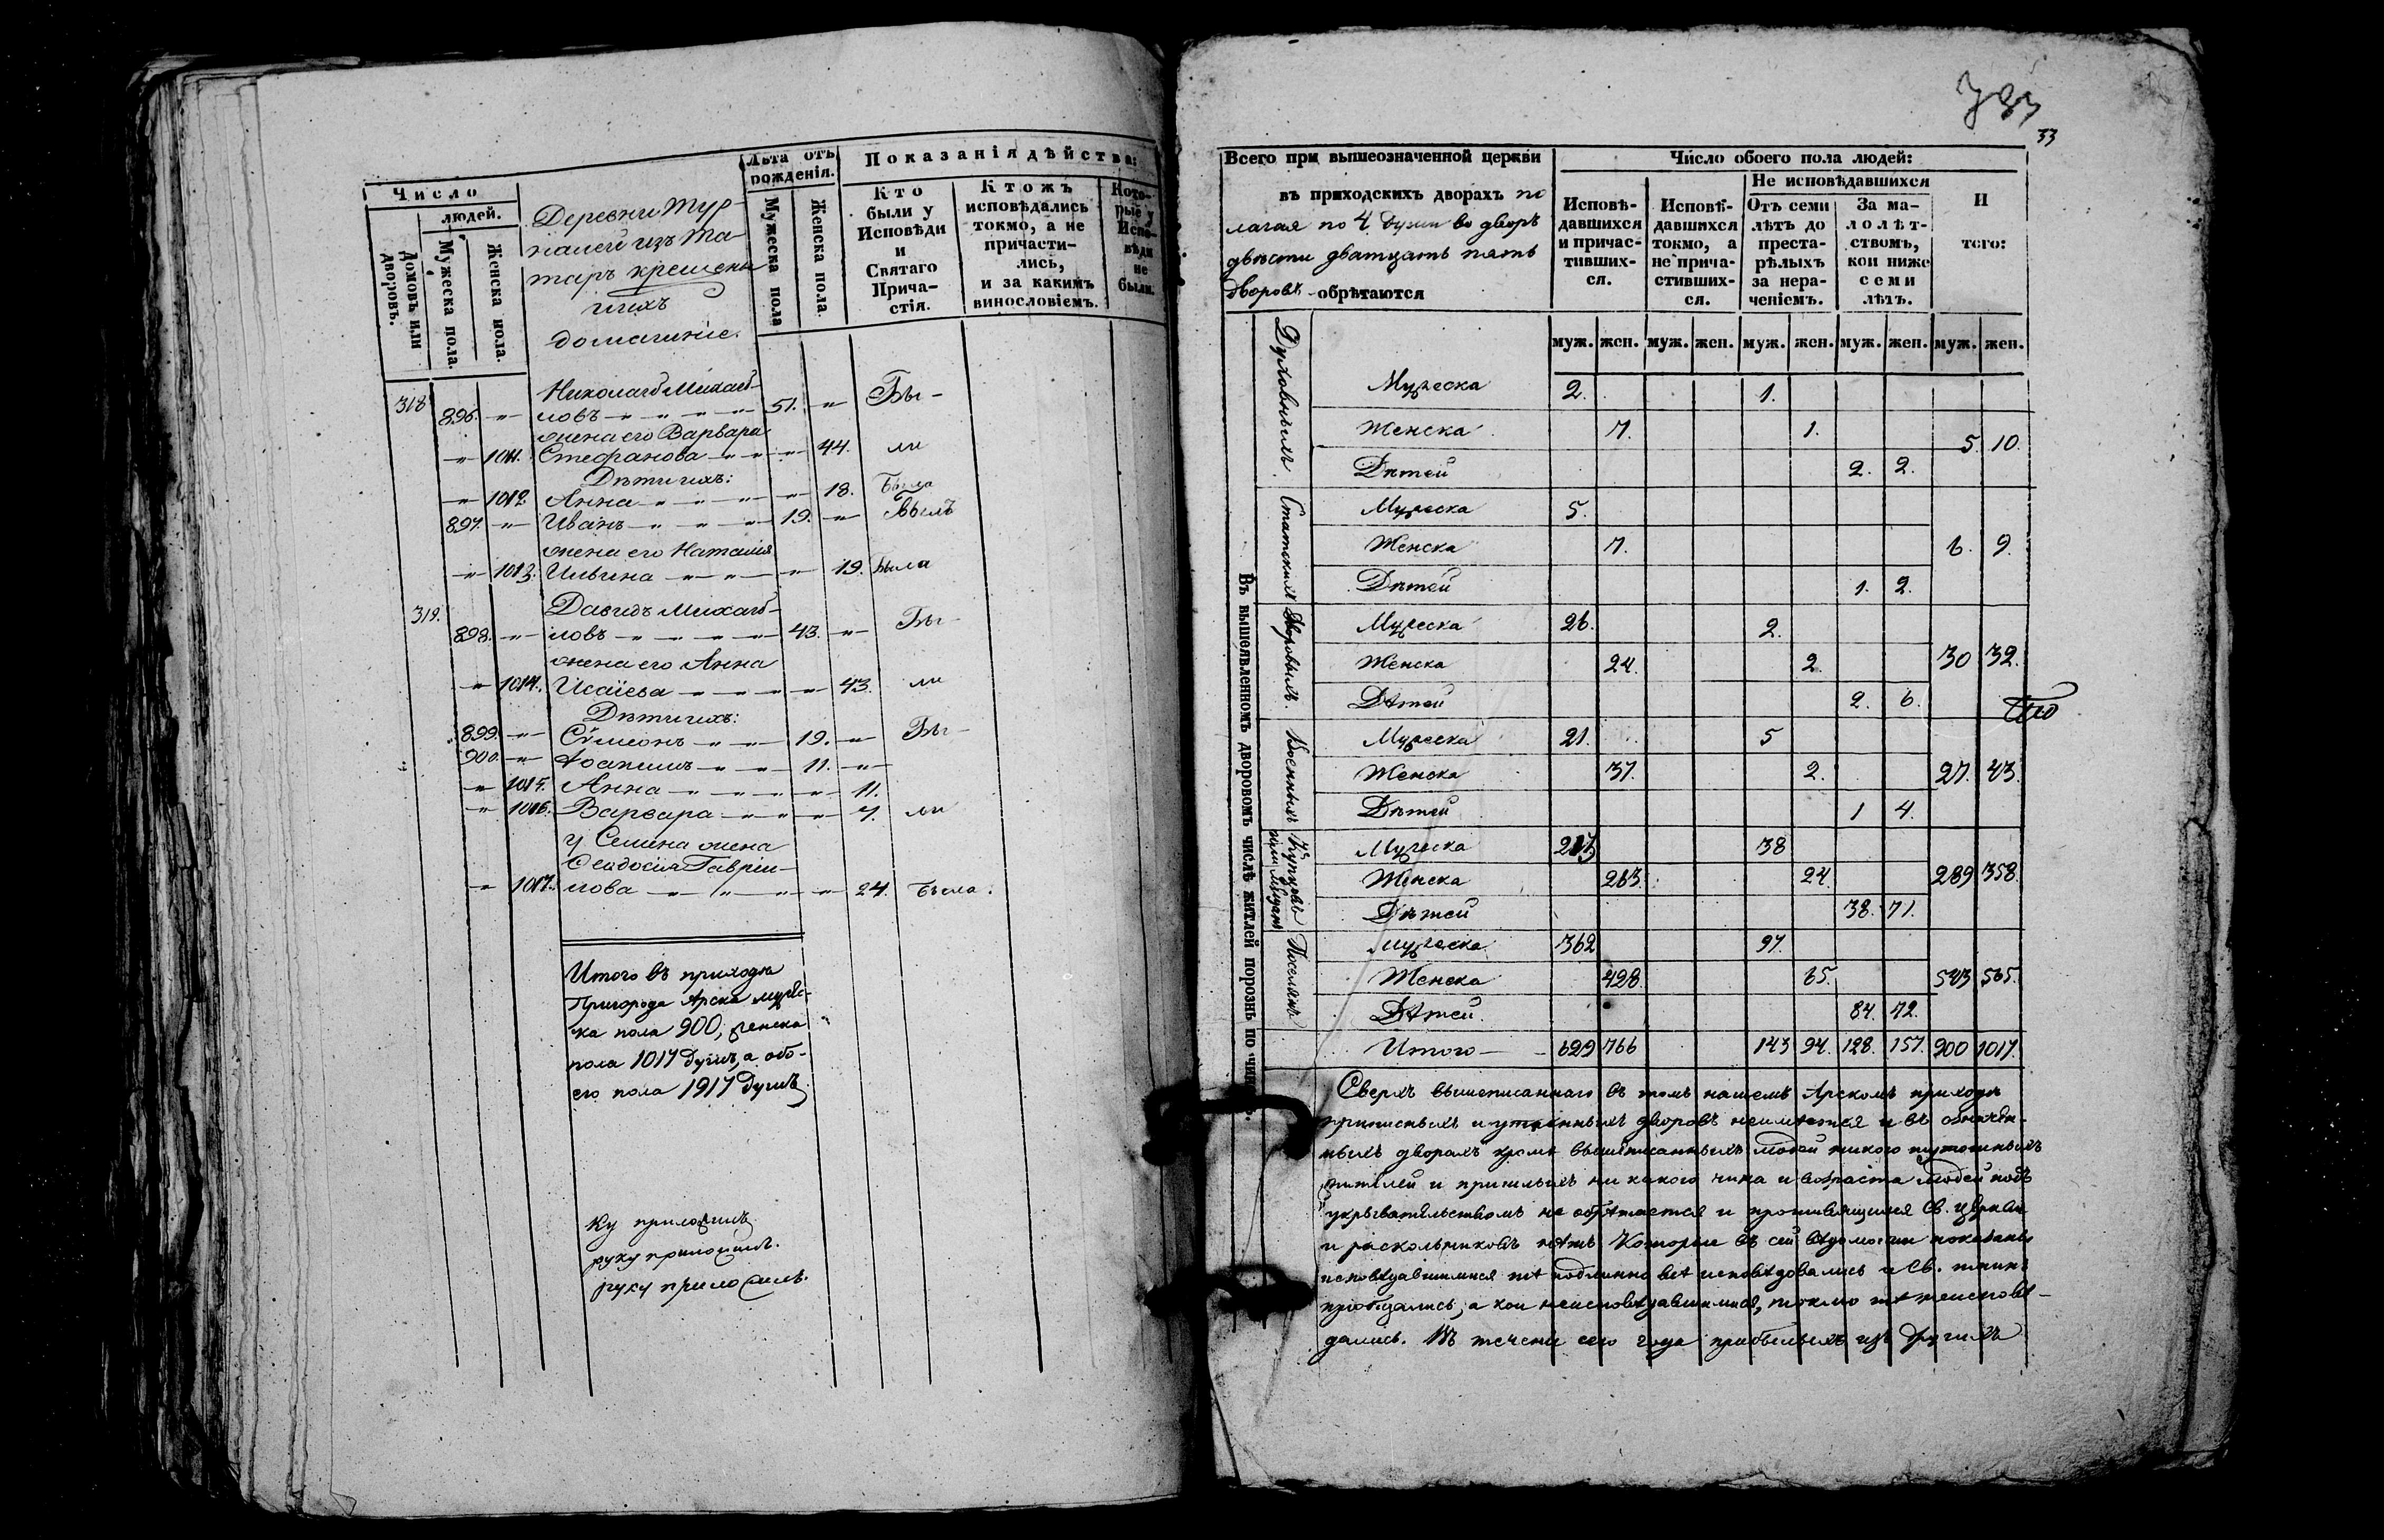 Число
людей.
Домовъ или дворовъ.
Мужеска пола.
Женска пола.
Деревни Тур-
налей изъ Та-
таръ крещены
ихъ
домашніе.
Лѣта отъ
рожденія.
Мужеска пола
Женска пола.
Показанія дѣйства:
Кто
были у
Исповѣди
и
Святаго
Прича-
стія.
Ктожъ
исповѣдались
токмо, а не
причасти-
лись,
и за какимъ
винословіемъ.
Кото-
рые у
Испо-
вѣди
не
были.
318 Николай Михай-
896. " ловъ 51. " Бы-
жена его Варвара
" 1011. Стефанова " 44. ли
Дѣти ихъ:
" 1012. Анна " 18. Была
897. " Иванъ 19. " Былъ
жена его Наталия
" 1013. Ильина " 19. Была
319. Давидъ Михай-
898. " ловъ 43. " Бы-
жена его Анна
" 1014. Исаіева " 43. ли
Дѣти ихъ:
899. " Сѵмеонъ 19. " Бы-
900. " 11. "
" 1015. Анна " 11.
" 1016. Варвара " 7. ли
у Семена жена
Ѳеодосія Гаврiи-
" 1017. лова " 24. Была.
Итого въ приходѣ
Пригорода Арска мужес-
ка пола 900, женска
пола 1017 душъ, а обо-
его пола 1917 душъ
ку приложилъ
руку приложилъ.
руку приложилъ.
33
Всего при вышеозначенной церкви
въ приходскихъ дворахъ по
лагая по 4 души во дворѣ
двѣсти двадцать пять
дворовъ обрѣтаются
Число обоего пола людей:
Исповѣ-
давшихся
и причас-
тивших-
ся.
Исповѣ-
давшихся
токмо, а
не прича-
стивших-
ся.
Не исповѣдавшихся
Отъ семи
лѣтъ до
преста-
рѣлыхъ
за нера-
ченіемъ.
За ма-
лолѣт-
ствомъ,
кои ниже
семи
лѣтъ.
И
того:
муж. жен. муж. жен. муж. жен. муж. жен. муж. жен.
Въ вышеявленномъ дворовомъ числѣ житлей порознь по чинамъ.
Духовныхъ.
Мужеска 2. 1.
Женска 7. 1. 5. 10.
Дѣтей 2. 2.
Статскихъ
Мужеска 5.
Женска 7. 6. 9.
Дѣтей 1. 2.
Дворовыхъ.
Мужеска 26. 2.
Женска 24. 2. 30 32.
Дѣтей 2. 6.
Военныхъ
Мужеска 21. 5
Женска 37. 2. 27. 43.
Дѣтей 1 4.
Купцовъ
Мужеска 213 38
Женска 263. 24. 289 358.
Дѣтей 38. 71.
Поселянъ
Мужеска 362 97.
Женска 428. 65. 543 565.
Дѣтей. 84. 72.
Итого 629 766 143 94. 128. 157. 900 1017.
Сверхъ вышеписаннаго въ томъ нашемъ Арскомъ приходѣ
приписныхъ и утаенныхъ дворовъ неимѣется и въ
ныхъ дворахъ кромѣ вышеписанныхъ людей никого
жителей и пришлыхъ ни какого чина и возраста людей подъ
укрывательствомъ не обрѣтается и противящихся Св. церкви
и раскольниковъ нѣтъ Которые въ сей вѣдомости показаны
исповѣдавшимися тѣ подлинно всѣ исповѣдовались и Св. таинъ
пріобщались, а кои неисповѣдавшимися, токмо тѣ неисповѣ-
дались. Въ течени сего года прибылыхъ изъ другихъ